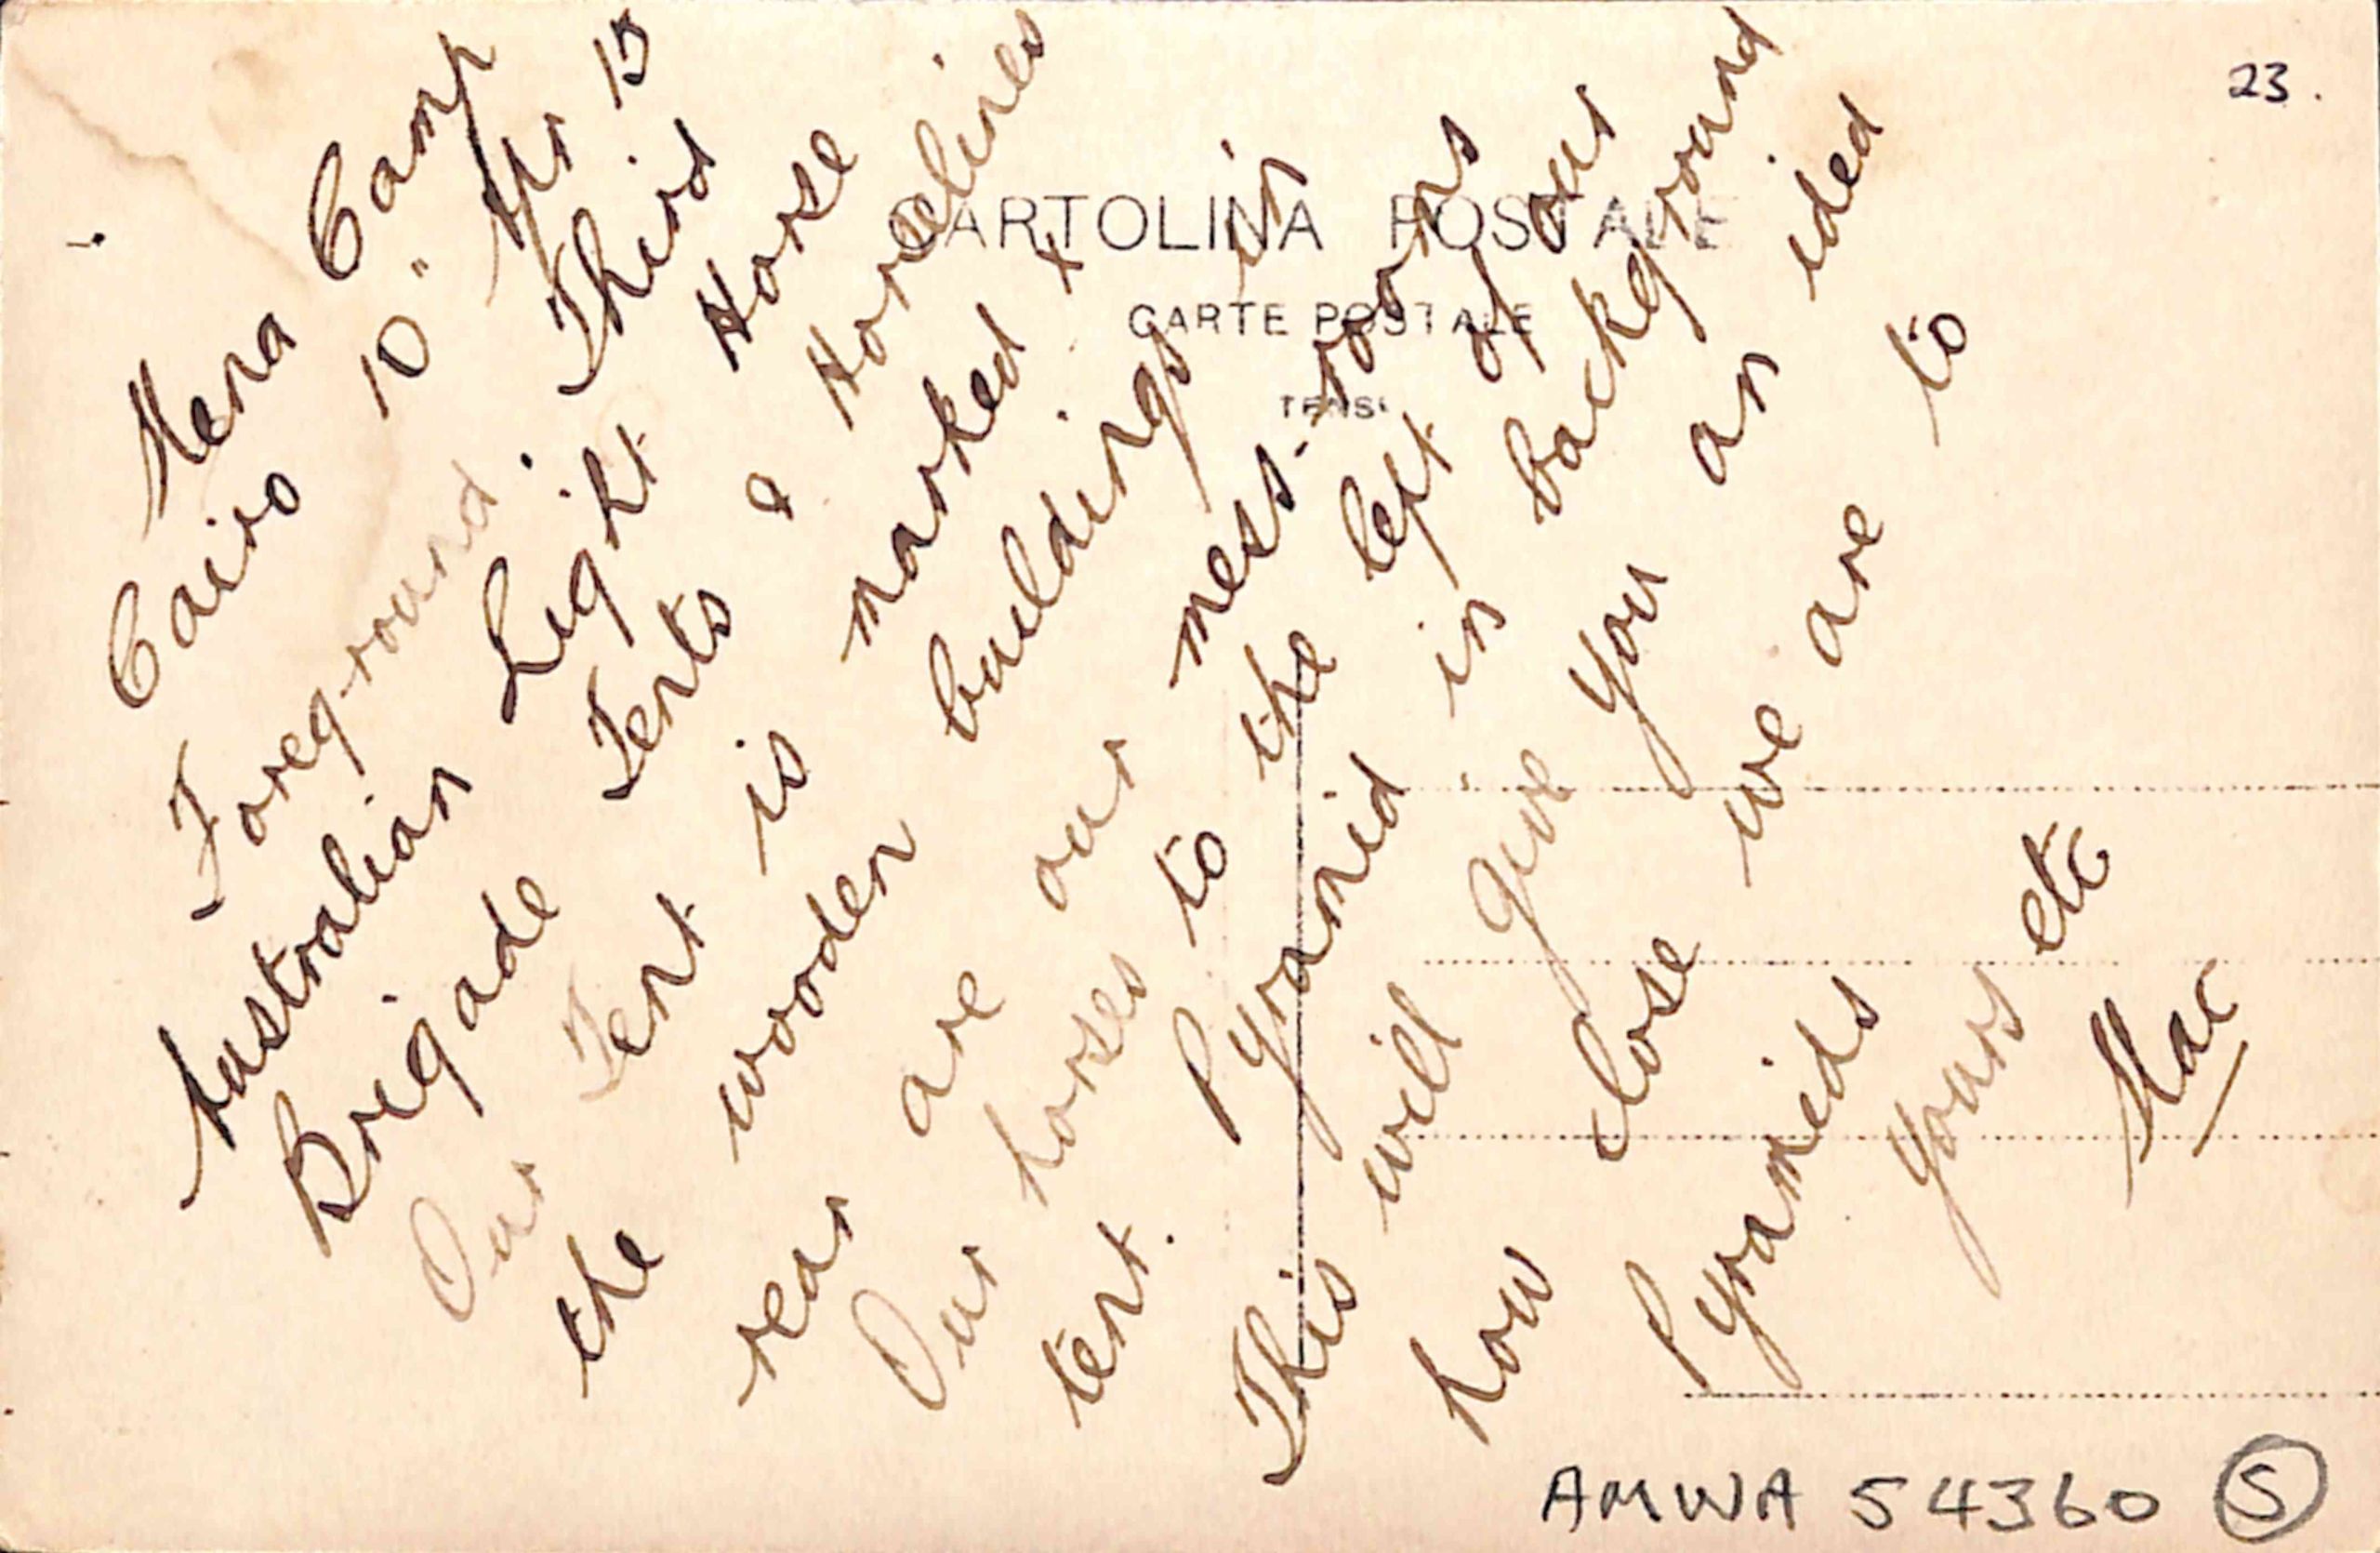 23.
CARTOLINA POSTALE
CARTE POSTALE
Mena Camp
Cairo 10" Apr 15
Foreground. Third
Australian Light Horse
Brigade Tents & Horselines
Our Tent is marked +
the wooden buildings in
rear are our mess-rooms
Our horses to the left of our
tent. Pyramid in background
This will give you an idea
how close we are to
Pyramids
Yours etc
Mac
AMWA 54360 S